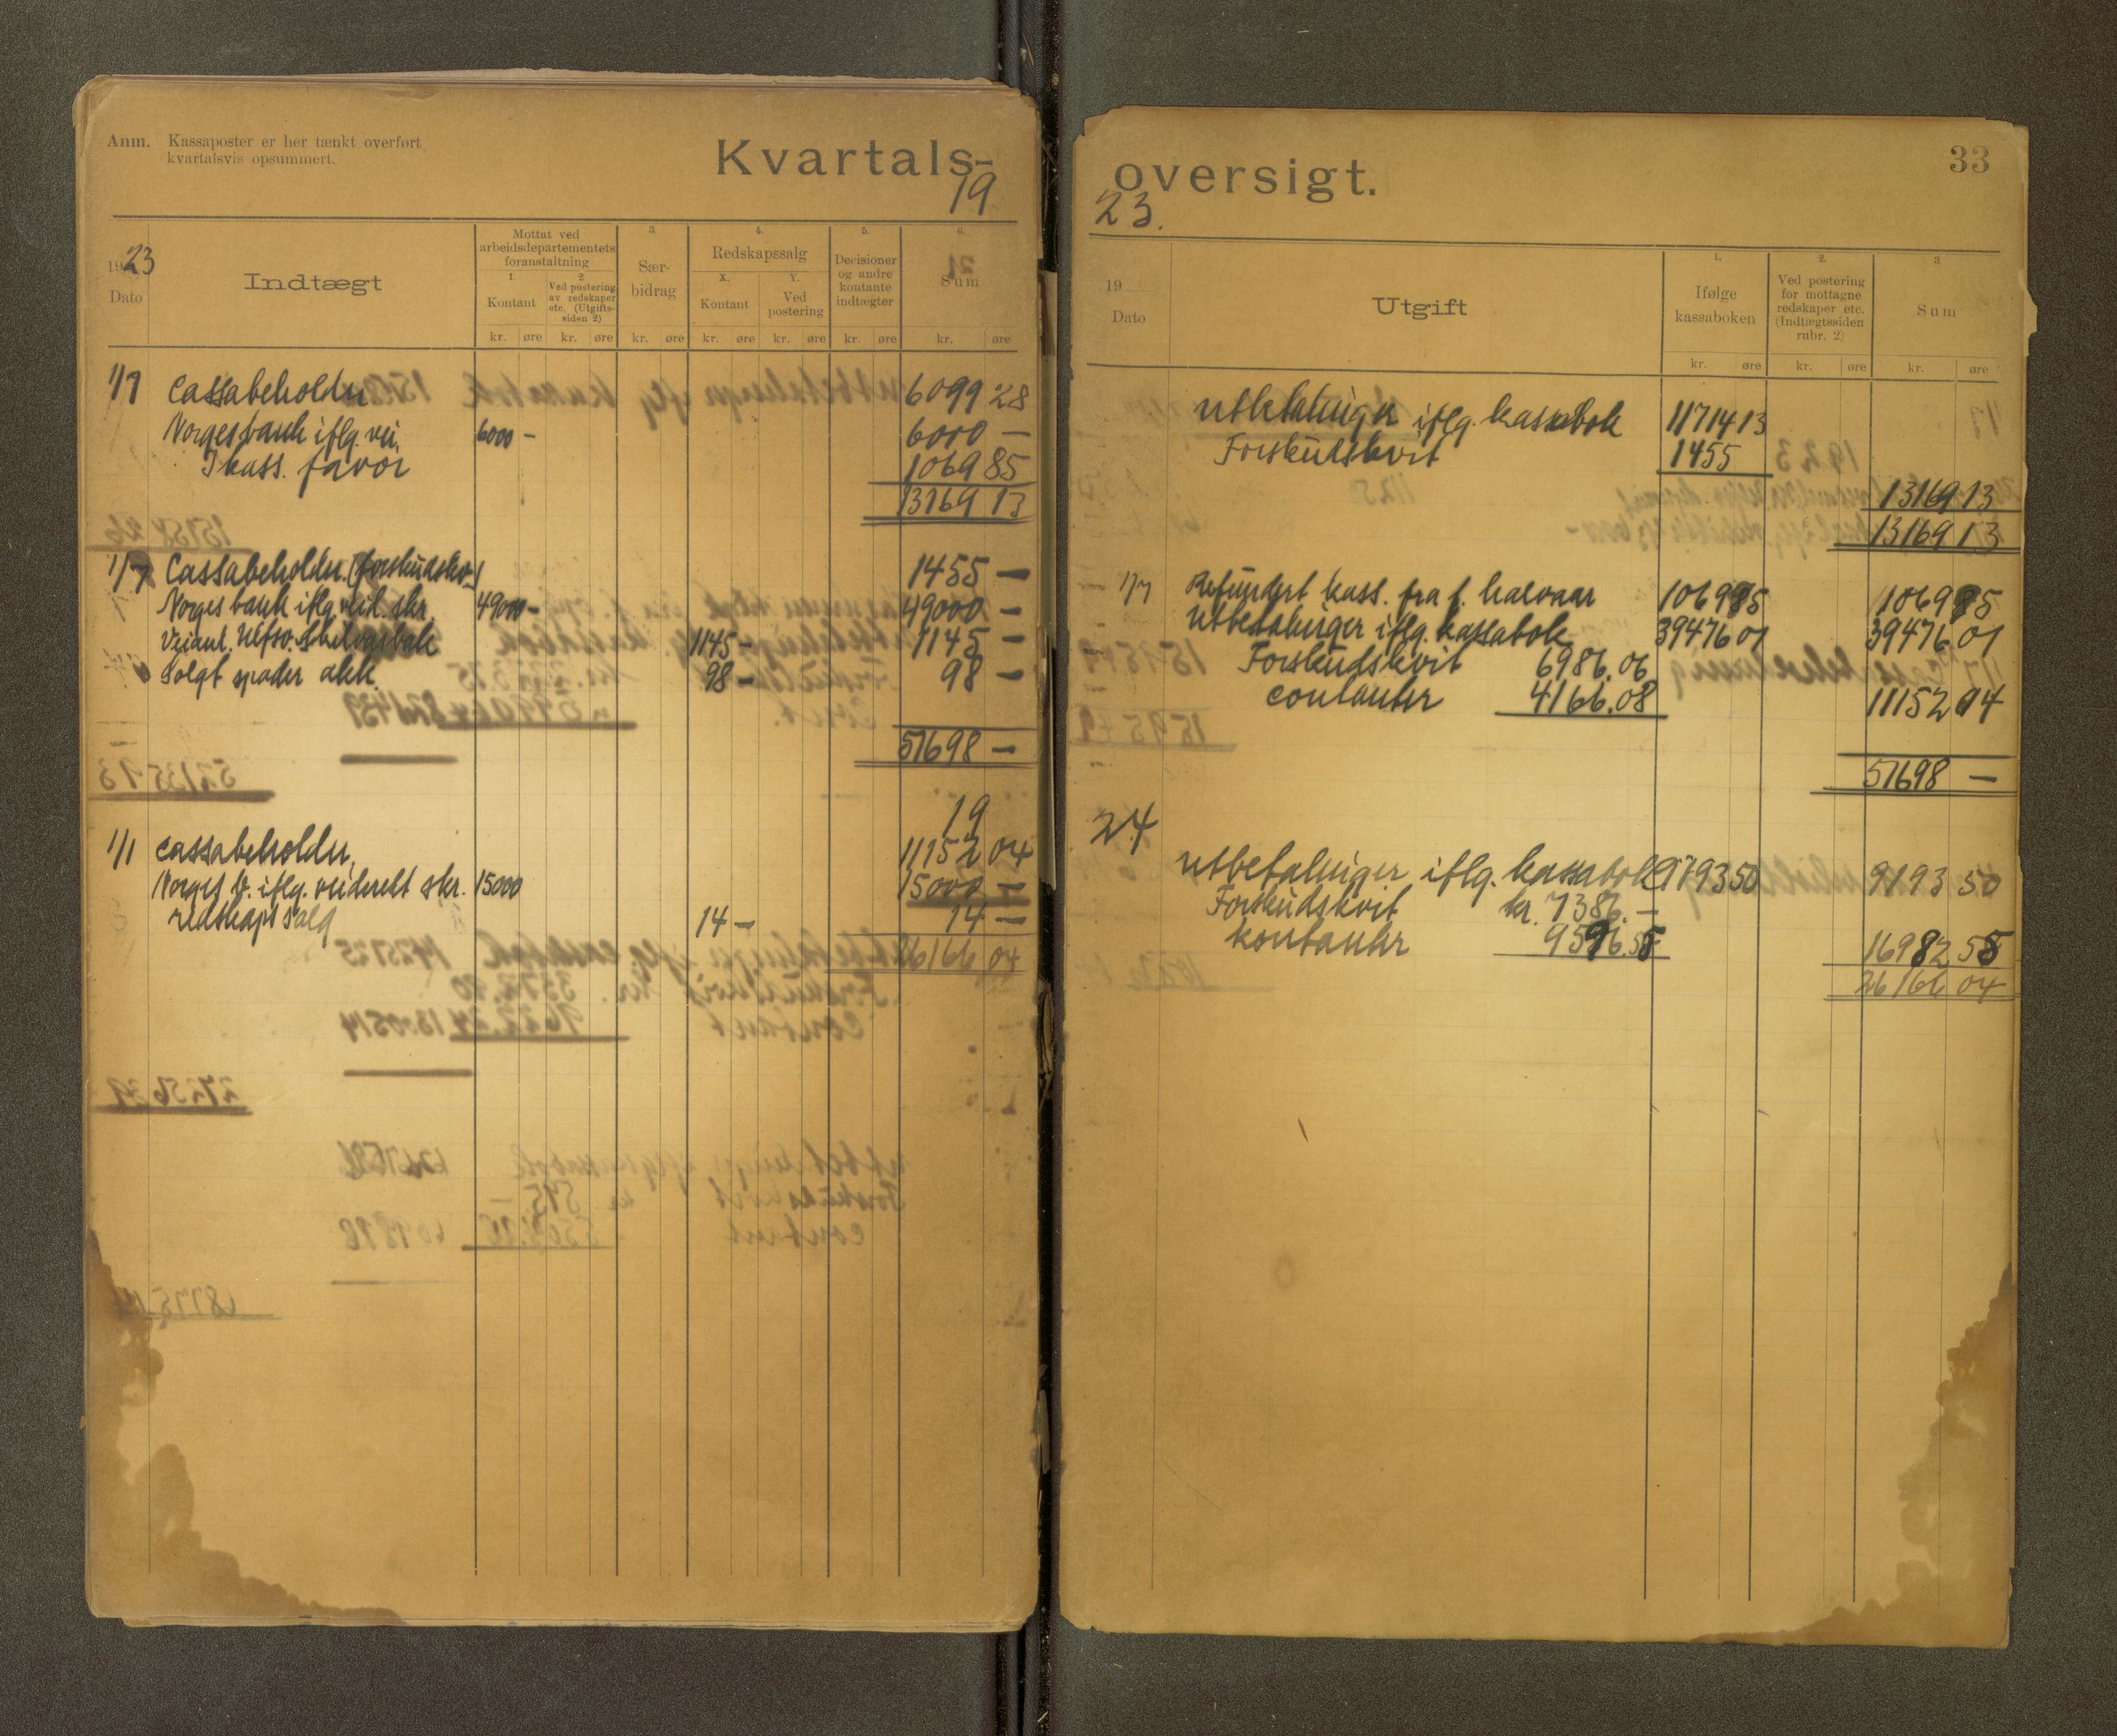 Anm. Kassaposter er her tænkt overført
kvartalsvis opsummert.
Kvartals-
19
1923
Dato
Indtægt
Mottat ved
arbeidsdepartementets
foranstaltning
1.
Kontant
2.
Ved postering
av redskaper
etc. (Utgifts-
siden 2)
3.
Sær-
bidrag
4.
Redskapssalg
X.
Kontant
Y.
Ved
postering
5.
Decisioner
og andre
kontante
indtægter
6.
Sum
kr. øre kr. øre kr. øre kr. øre kr. øre kr. øre kr. øre
1/7 Cassabeholdn 6099 28
Norges bank iflg. vei. 6000 – 6000 –
I kass. favør 1069 85
13169 13
1/7 Cassabeholdn. (forskudskv.) 1455 –
Norges bank iflg. skr. 49000 – 49000 –
Veianl. 1145 – 1145 –
Solgt spader akk. 98 – 98 –
51698 –
19
1/1 Cassabeholdn, 11152 04
Norges b. iflg. skr. 15000 15000 –
redskaps salg 14 – 14 –
26166 04
oversigt.
33
23.
19
Dato
Utgift
1.
Ifølge
kassaboken
2.
Ved postering
for mottagne
redskaper etc.
(Indtægtssiden
rubr. 2)
3.
Sum
kr. øre kr. øre kr. øre
Utbetalinger iflg. kassabok 11714 13
Forskudskvit 1455
13169 13
13169 13
1/7 Refundert kass. fra f. halvaar 1069 85 1069 85
Utbetalinger iflg. kassabok 39476 01 39476 01
Forskudskvit 6986.06
contanter 4166.08 11152 14
51698 –
24
Utbetalinger iflg. kassabok 9193 50 9193 50
Forskudskvit kr. 7386. –
kontanter 9596.58 16982 58
26166 04